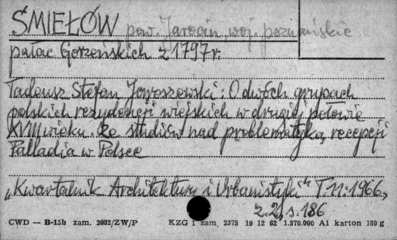 ŚMIEŁÓW pow. Jarocin, woj. poznańskie
pałac Gorzeńskich z 1797r.
Tadeusz Stefan Jaroszewski: O dwóch grupach
polskich rezydencji wiejskich w drugiej połowie
XVIII wieku. Ze studiów nad problematyką recepcji
Palladia w Polsce
„Kwartalnik Architektury i Urbanistyki" T.11:1966,
z.2, s.186
CWD — B-15b zam. 2032/ZW/P KZG 1 zam. 2375 19 12 62 1.570.000 A1 karton 180 g